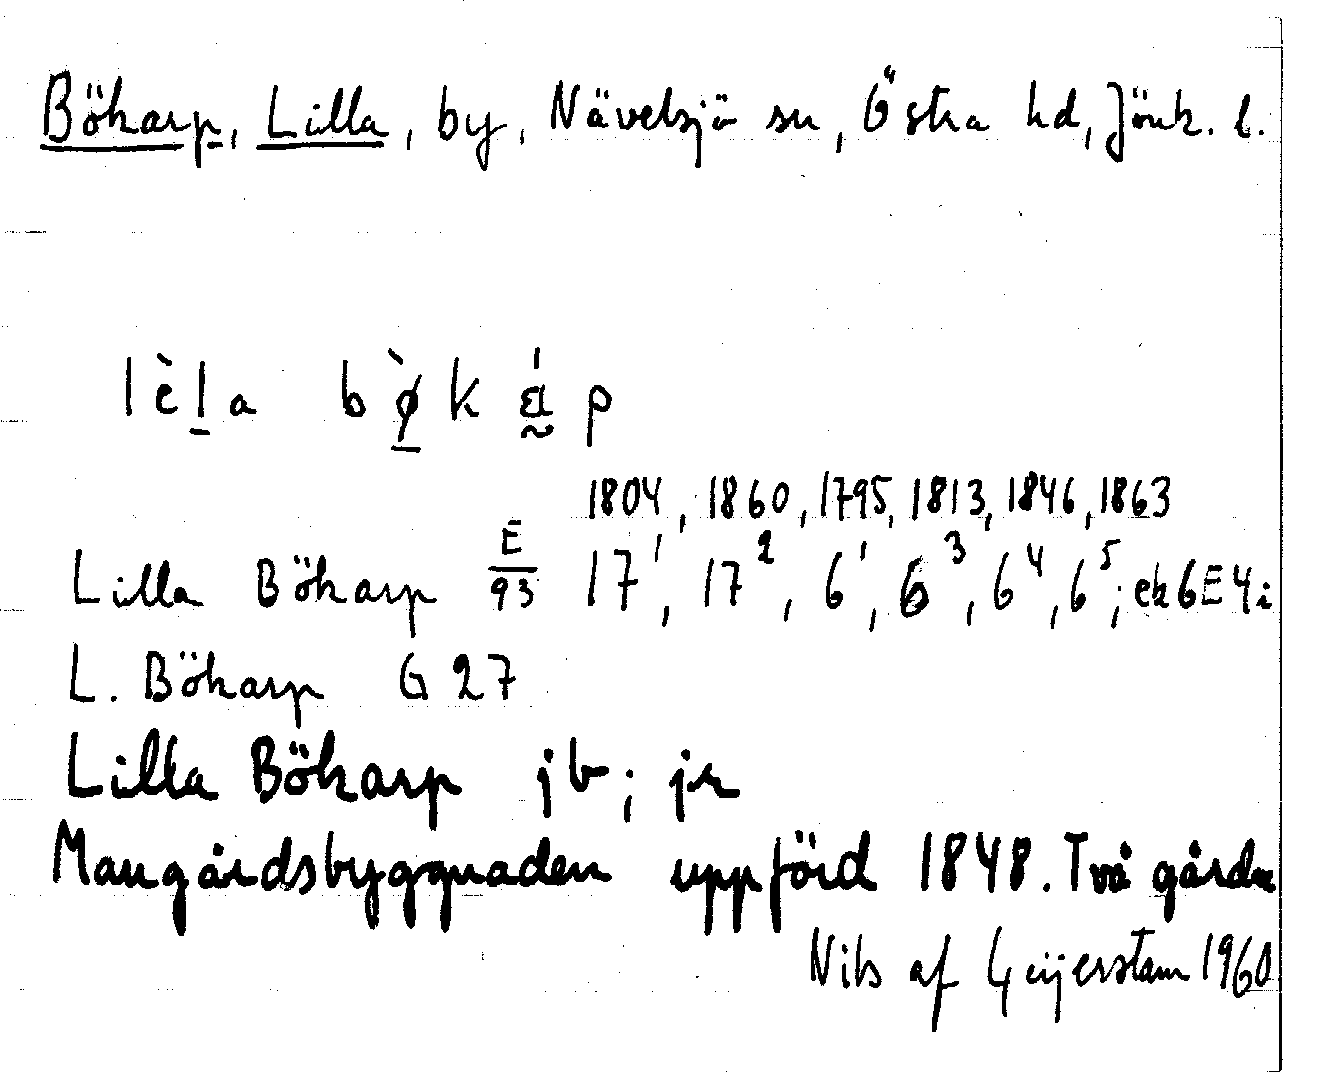 Bökarp, Lilla, by, Nävelsjö sn, Östra hd, Jönk. l.
lèla bø̀k p
1804, 1860, 1795, 1813, 1846, 1863
Lilla Bökarp E/93 17¹, 17², 6¹, 6³, 6⁴, 6⁵; ek 6E4i
L. Bökarp G 27
Lilla Bökarp jb; jr
Mangårdsbyggnaden uppförd 1848. Två gårdar
Nils af Geijerstam 1960